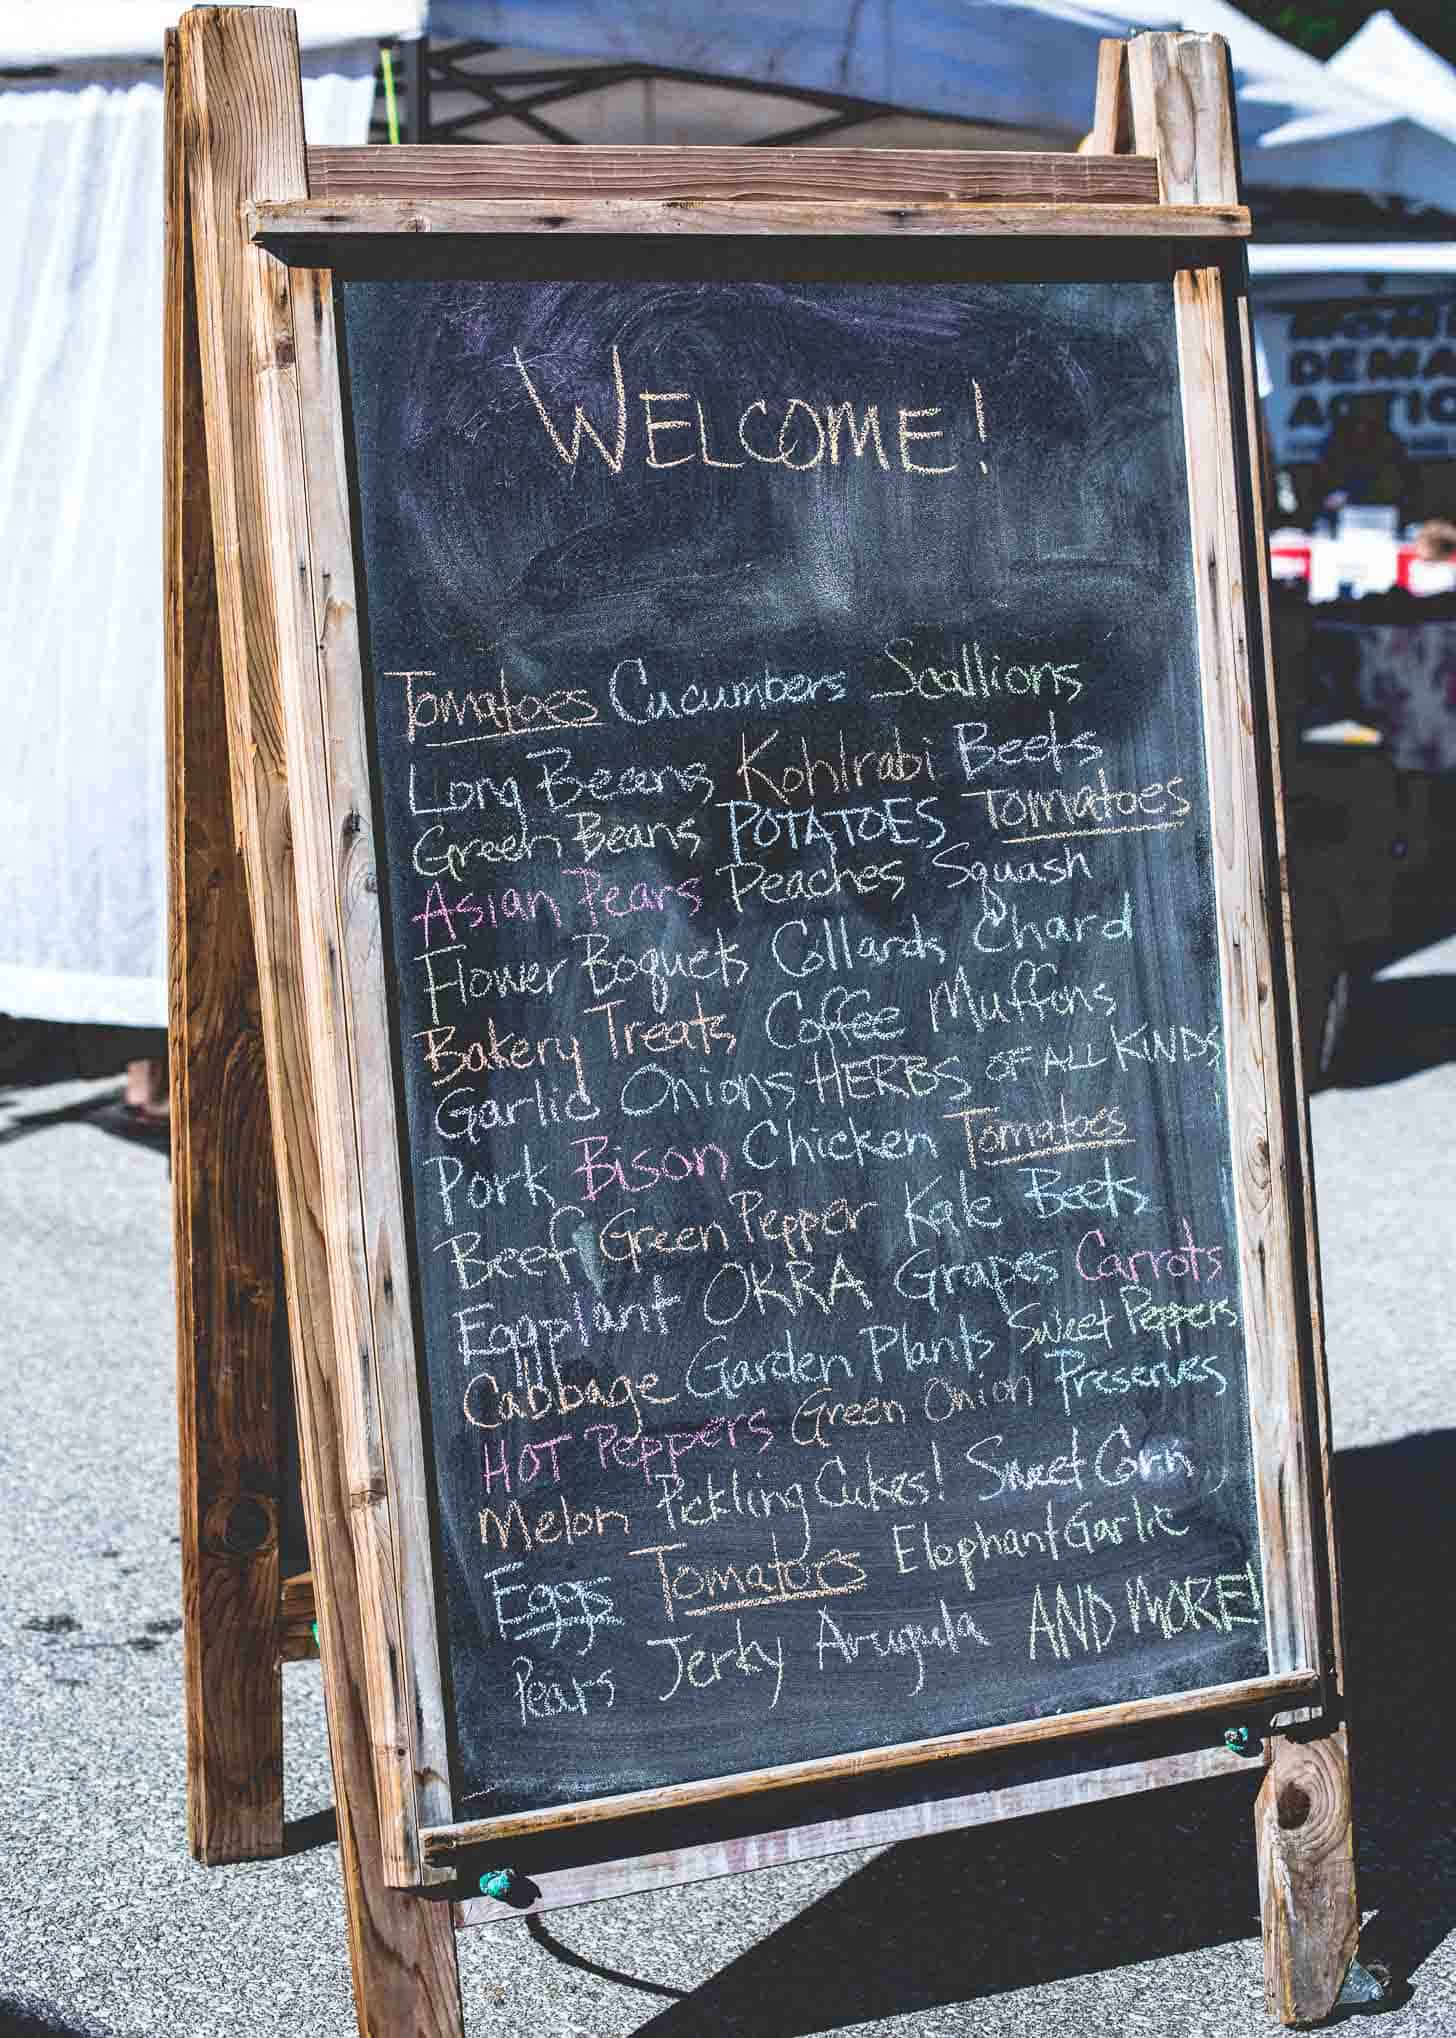 WELCOME!
Tomatoes Cucumbers Scallions
Long Beans Kohlrabi Beets
Green Beans POTATOES Tomatoes
Asian Pears Peaches Squash
Flower Boquets Collards Chard
Bakery Treats Coffee Muffins
Garlic Onions HERBS OF ALL KINDS
Pork Bison Chicken Tomatoes
Beef Green Pepper Kale Beets
Eggplant OKRA Grapes Carrots
Cabbage Garden Plants Sweet Peppers
HOT Peppers Green Onion Preserves
Melon Pickling Cukes! Sweet Corn
Eggs Tomatoes Elephant Garlic
Pears Jerky Arugula AND MORE!